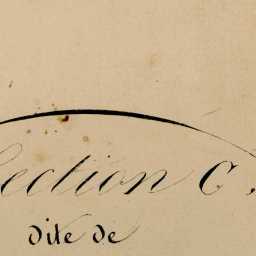 Section C.
dite de